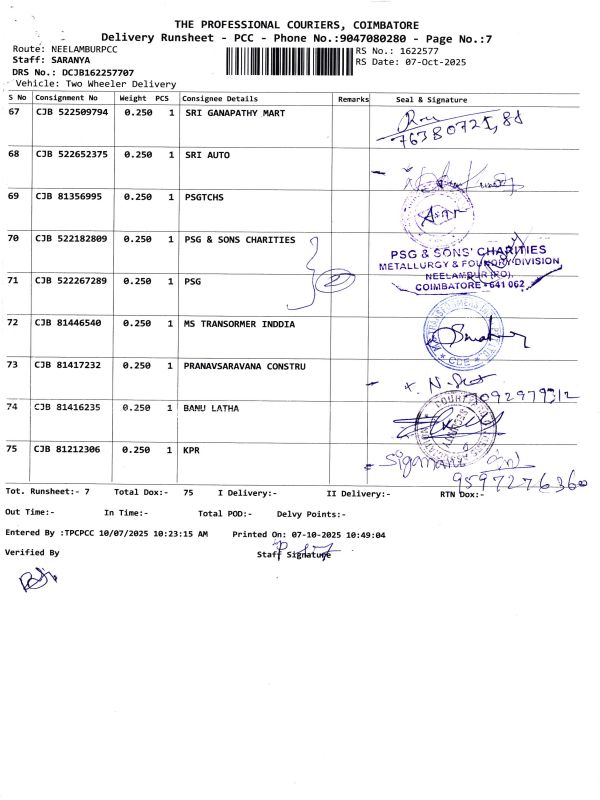 THE PROFESSIONAL COURIERS, COIMBATORE
Delivery Runsheet - PCC - Phone No.:9047080280 - Page No.:7
Route: NEELAMBURPCC RS No.: 1622577
Staff: SARANYA RS Date: 07-Oct-2025
DRS No.: DCJB162257707
Vehicle: Two Wheeler Delivery
S No Consignment No Weight PCS Consignee Details Remarks Seal & Signature
67 CJB 522509794 0.250 1 SRI GANAPATHY MART
68 CJB 522652375 0.250 1 SRI AUTO
69 CJB 81356995 0.250 1 PSGTCHS
70 CJB 522182809 0.250 1 PSG & SONS CHARITIES
PSG & SONS' CHARITIES
METALLURGY & FOUNDRY DIVISION
NEELAMBUR (PO),
COIMBATORE - 641 062
71 CJB 522267289 0.250 1 PSG 2
72 CJB 81446540 0.250 1 MS TRANSORMER INDDIA
CBE
73 CJB 81417232 0.250 1 PRANAVSARAVANA CONSTRU
9092979312
74 CJB 81416235 0.250 1 BANU LATHA
75 CJB 81212306 0.250 1 KPR
9597276360
Tot. Runsheet:- 7 Total Dox:- 75 I Delivery:- II Delivery:- RTN Dox:-
Out Time:- In Time:- Total POD:- Delvy Points:-
Entered By :TPCPCC 10/07/2025 10:23:15 AM Printed On: 07-10-2025 10:49:04
Verified By Staff Signature